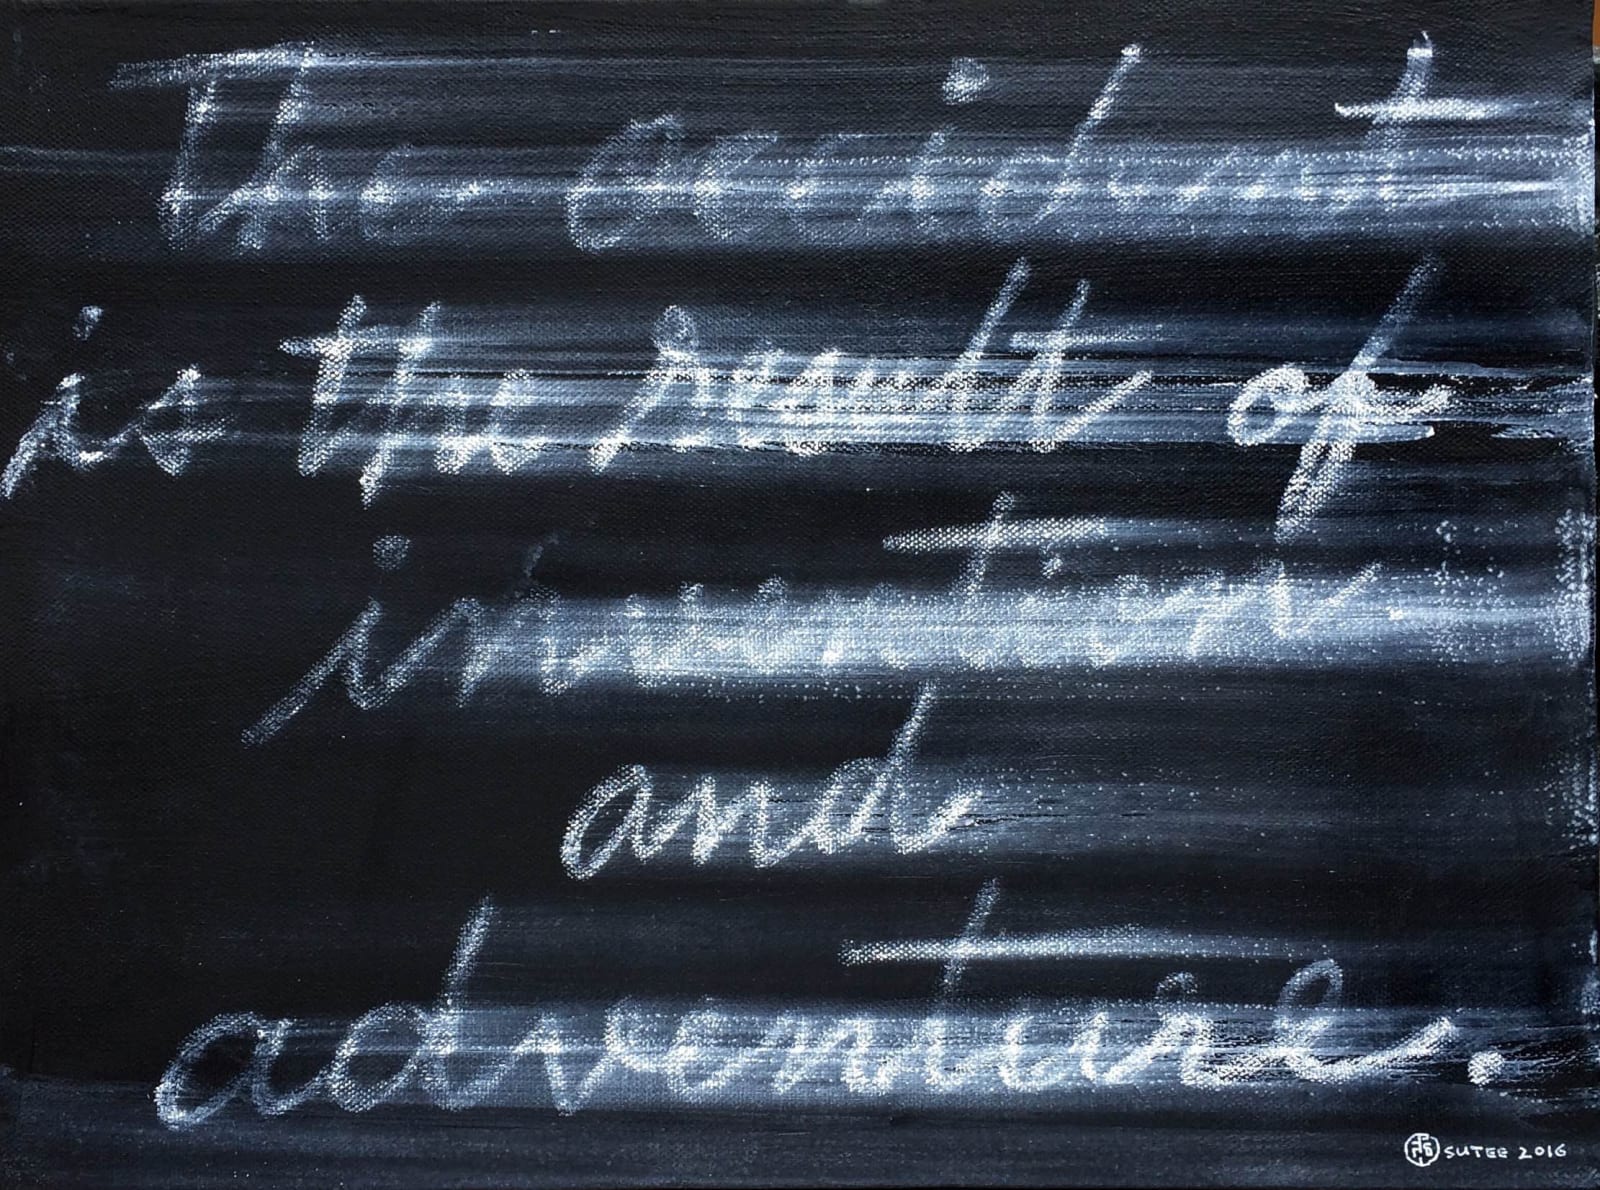 The accident
is the result of
invention
and
adventure.
SUTEE 2016